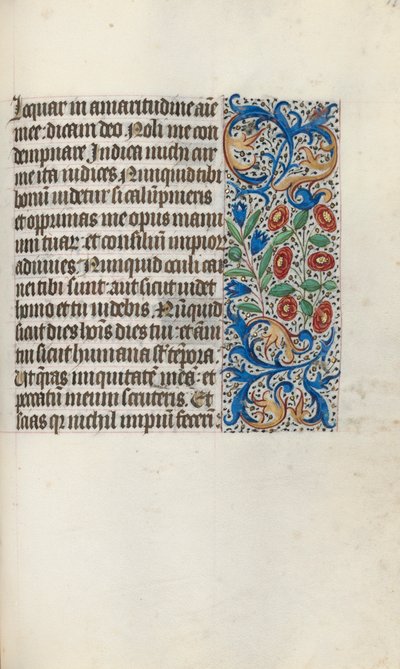 loquar in amaritudine aīe
mee. dicam deo. Noli me con
dempnare. Indica michi cur
me ita iudices. Nunquid tibi
bonū uidetur si calūpnieris
et opprimas me opus manu
um tuar. et consiliū impior
adiuues. Nunquid oculi car
nei tibi sunt. aut sicut uidet
homo et tu uidebis. Nūquid
sicut dies hoīs dies tui. et anī
tui sicut humana st tēpora.
Ut q̄ras iniquitatē meā. et
peccatū meum scruteris. Et
scias qr nichil impiū feceri